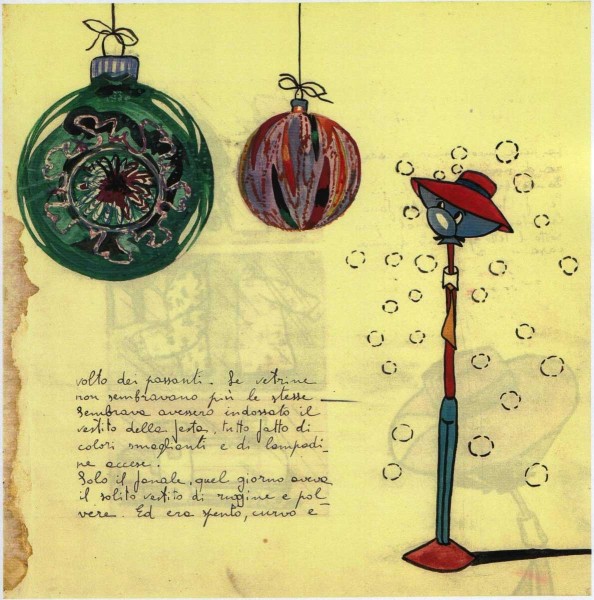 volto dei passanti. Le vetrine
non sembravano più le stesse
sembrava avessero indossato il
vestito della festa, tutto fatto di
colori smaglianti e di lampadi_
ne accese.
Solo il fanale, quel giorno aveva
il solito vestito di ruggine e pol_
vere. Ed era spento, curvo e